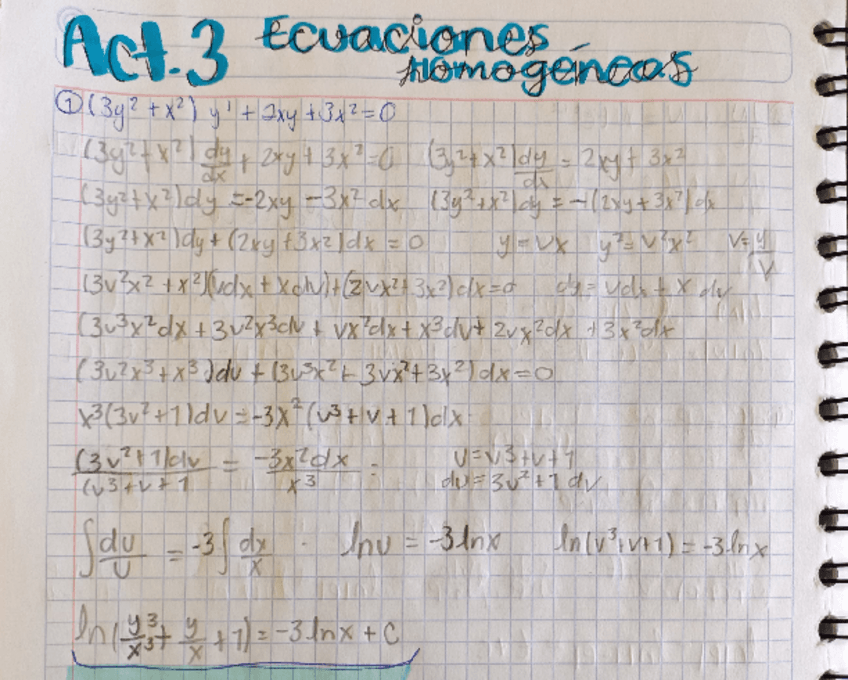 Act.3 Ecuaciones Homogéneas
① (3y² + x²) y' + 2xy + 3x² = 0
(3y² + x²) dy/dx + 2xy + 3x² = 0 (3y² + x²) dy/dx = 2xy + 3x²
(3y² + x²) dy = -2xy - 3x² dx (3y² + x²) dy = -(2xy + 3x²) dx
(3y² + x²) dy + (2xy + 3x²) dx = 0 y = vx y² = v²x² v = y/v
(3v²x² + x²)(vdx + xdv) + (2vx² + 3x²) dx = 0 dy = vdx + x dv
(3v³x²dx + 3v²x³dv + vx²dx + x³dv + 2vx²dx + 3x²dx
(3v²x³ + x³) dv + (3v³x² + 3vx² + 3x²) dx = 0
x³(3v² + 1) dv = -3x² (v³ + v + 1) dx
(3v² + 1) dv / (v³ + v + 1 = -3x² dx / x³ : u = v³ + v + 1
du = 3v² + 1 dv
∫ du/u = -3 ∫ dx/x · ln u = -3 ln x ln(v³ + v + 1) = -3 ln x
ln(y³/x³ + y/x + 1) = -3 ln x + C